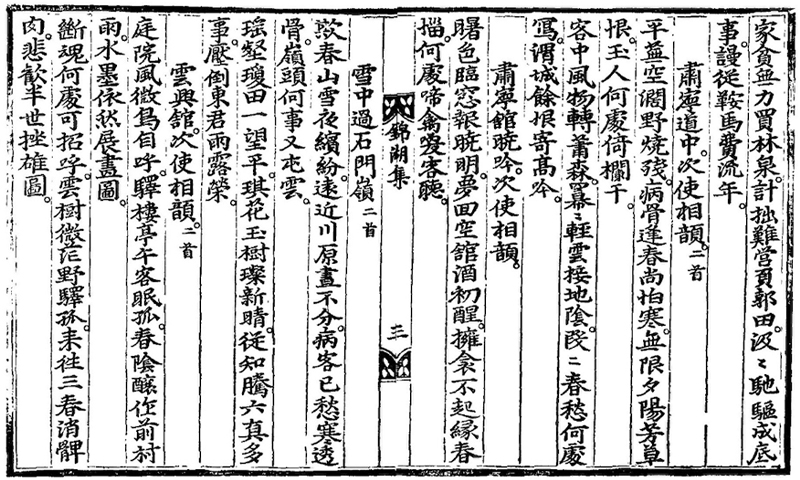 家貧無力買林泉。計拙難營負郭田。汲〻馳驅成底
事。謾從鞍馬費流年。
肅寧道中。次使相韻。二首
平蕪空濶野燒殘。病骨逢春尚怕寒。無限夕陽芳草
恨。玉人何處倚欄干。
客中風物轉蕭森。羃〻輕雲接地陰。段〻春愁何處
寫。渭城餘恨寄高吟。
肅寧舘曉吟。次使相韻。
曙色臨窓報曉明。夢回空舘酒初醒。擁衾不起緣春
惱。何處啼禽喚客聽。
錦湖集 三
雪中過石門嶺二首
欺春山雪夜繽紛。遠近川原盡不分。病客已愁寒透
骨。嶺頭何事又屯雲。
瑤壑瓊田一望平。琪花玉樹璨新晴。從知騰六真多
事。壓倒東君雨露榮。
雲興舘。次使相韻。二首
庭院風微鳥自呼。驛樓亭午客眠孤。春陰釀作前村
雨。水墨依然展畫圖。
斷魂何處可招呼。雲樹微茫野驛孤。來往三春消髀
肉。悲歡半世挫雄圖。